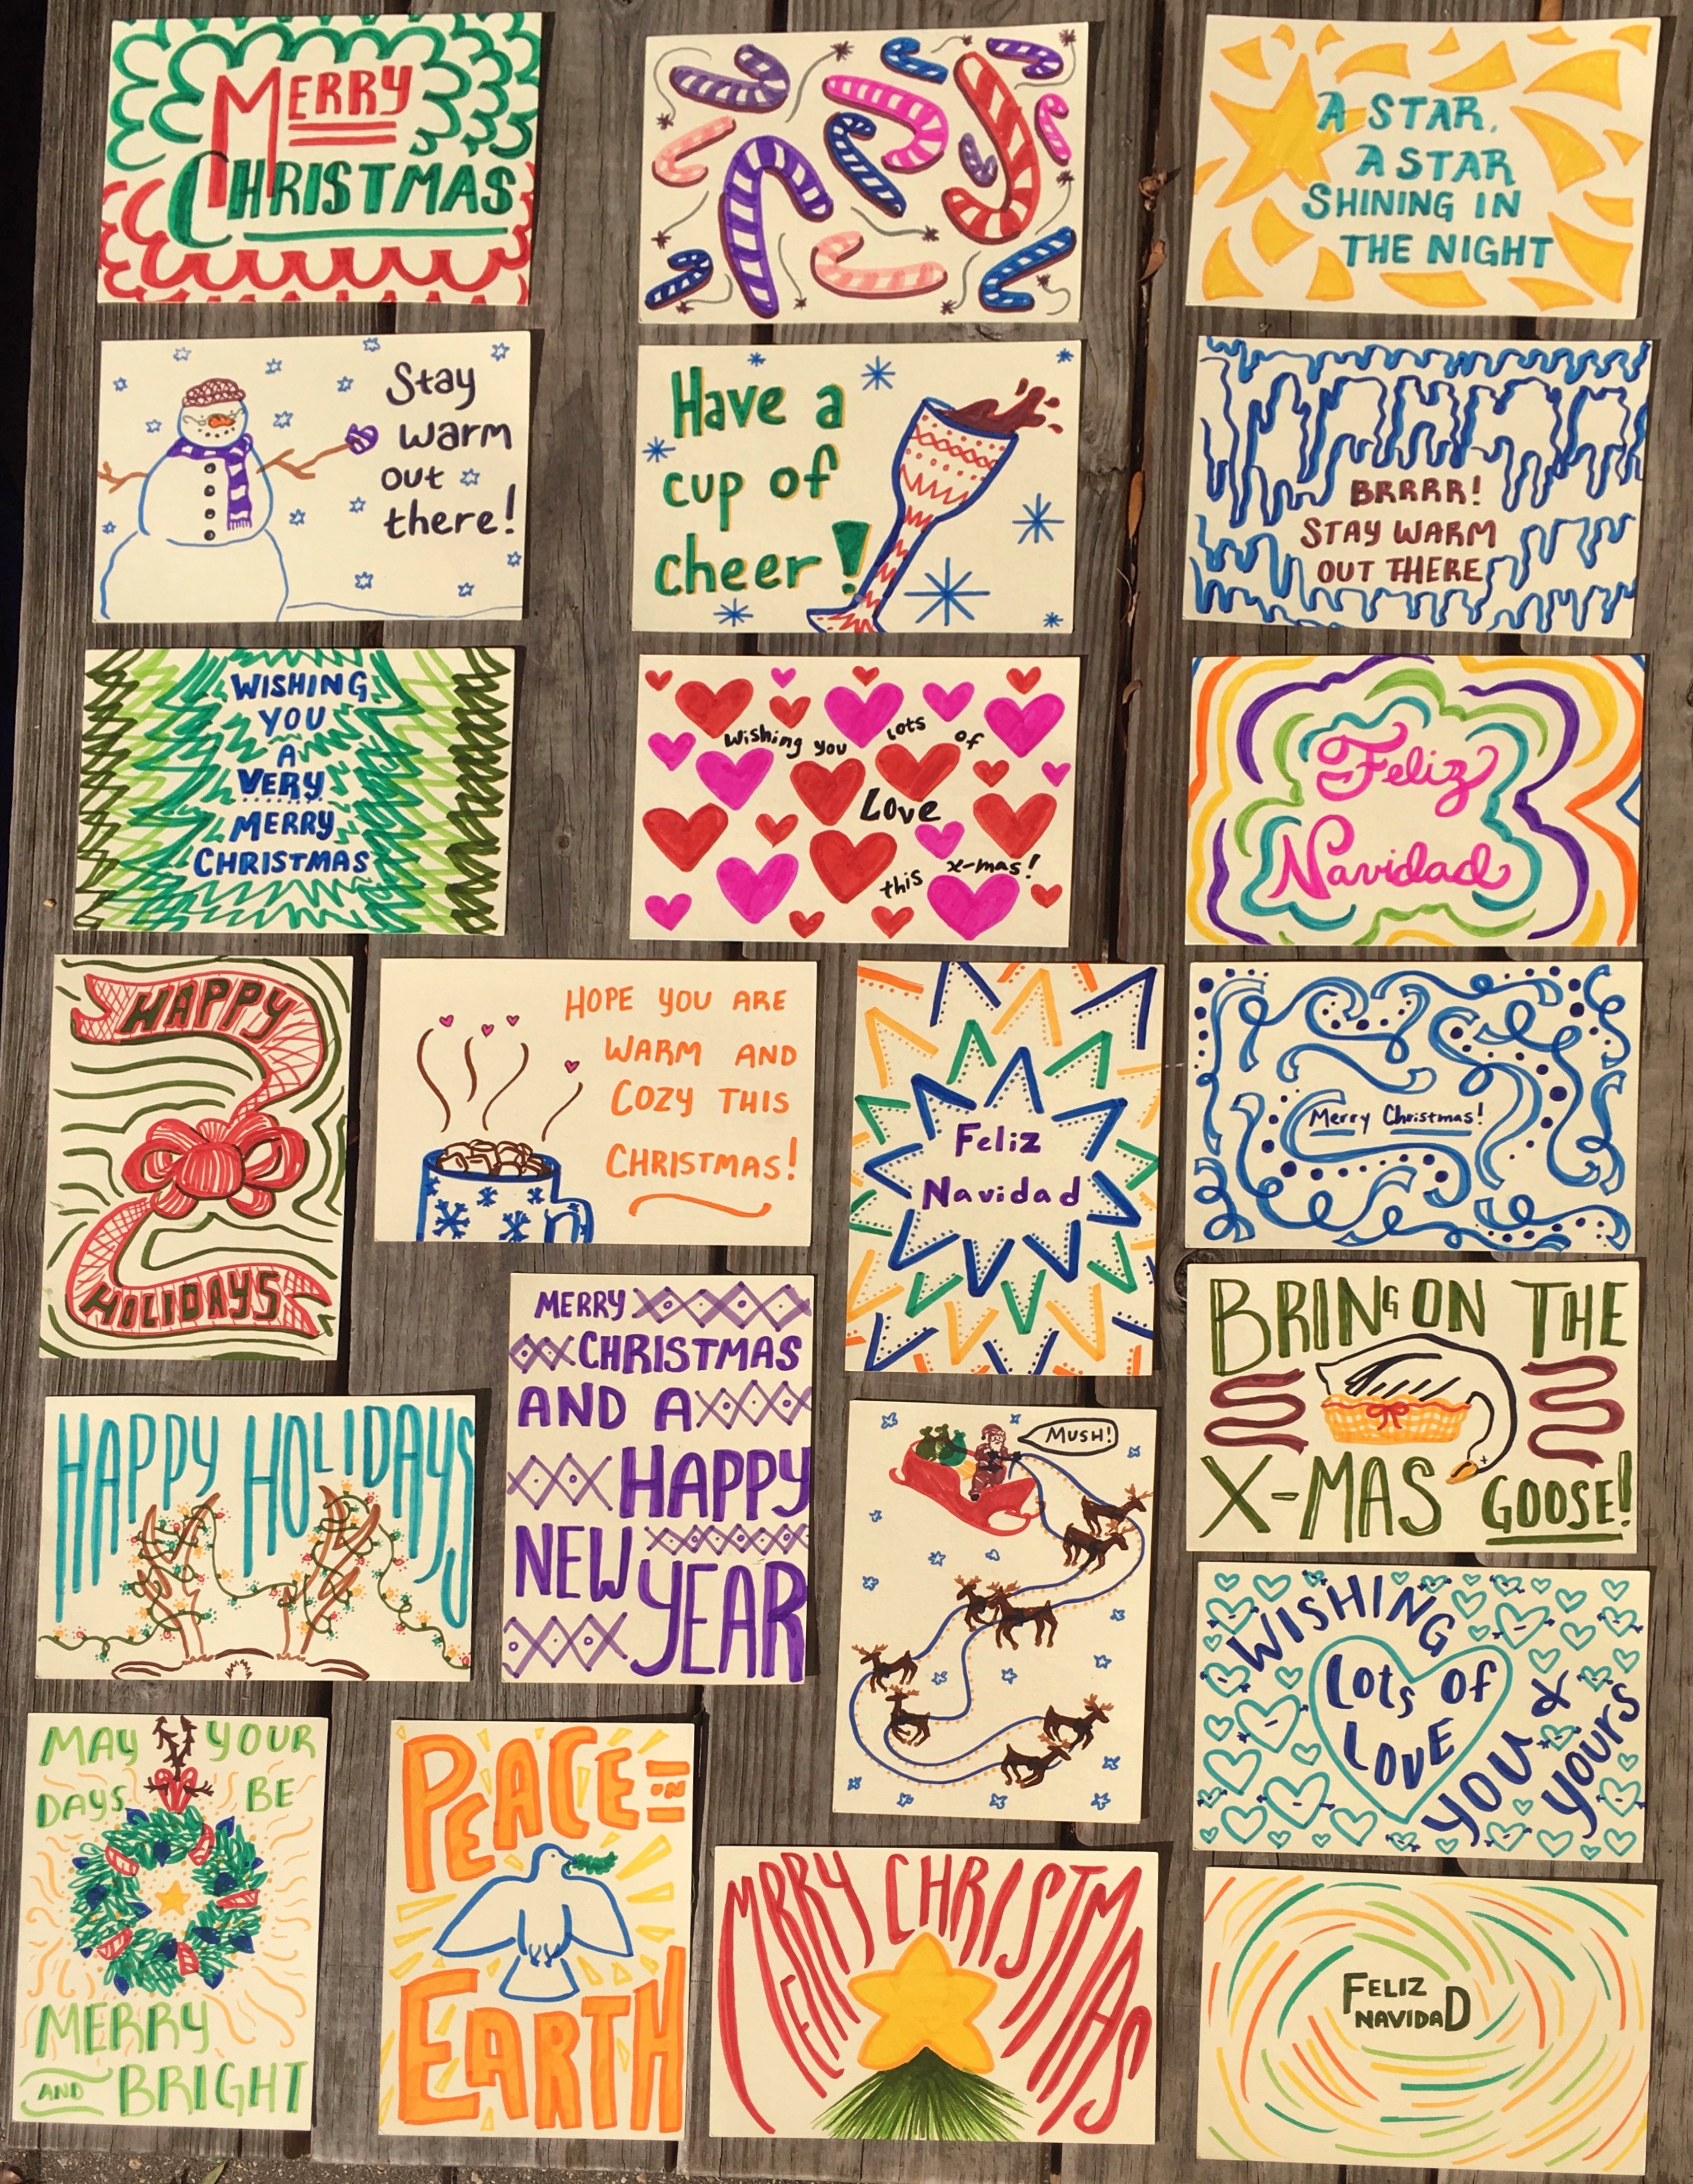 MERRY
CHRISTMAS
A STAR,
A STAR
SHINING IN
THE NIGHT
Stay
warm
out
there!
Have a
cup of
cheer!
BRRRR!
STAY WARM
OUT THERE
WISHING
YOU
A
VERY
MERRY
CHRISTMAS
Wishing you lots of
Love
this x-mas!
Feliz
Navidad
HAPPY
HOLIDAYS
HOPE YOU ARE
WARM AND
COZY THIS
CHRISTMAS!
Feliz
Navidad
Merry Christmas!
MERRY
CHRISTMAS
AND A
HAPPY
NEW
YEAR
BRING ON THE
X-MAS GOOSE!
HAPPY HOLIDAYS
MUSH!
WISHING
LOTS OF
LOVE
YOU &
YOURS
MAY YOUR
DAYS BE
MERRY
AND BRIGHT
PEACE
IN
EARTH
MERRY CHRISTMAS
FELIZ
NAVIDAD